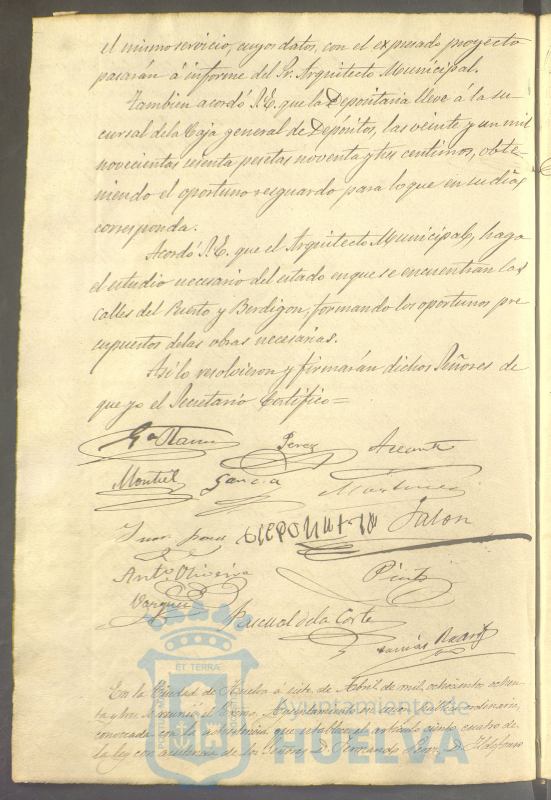 el mismo servicio, cuyos datos, con el expresado proyecto
pasarán á informe del Sr. Arquitecto Municipal.
Tambien acordó S.E. que la Depositaria lleve á la su-
cursal de la Caja general de Depósitos, las veinte y un mil
novecientas sesenta pesetas noventa y tres centimos, obte-
niendo el oportuno resguardo para lo que en su dia
corresponda.
Acordó S.E. que el Arquitecto Municipal, haga
el estudio necesario del estado en que se encuentran las
calles del Puerto y Berdigon, formando los oportunos pre-
supuestos de las obras necesarias.
Asi lo resolvieron y firmarán dichos Señores de
que yo el Secretario Certifico=
Perez
Montiel Garcia Martinez
Jalon
Anto. Oliveira Pinto
Vazquez
Pascual de la Corte
Tomás
ET TERRÆ
En la Ciudad de Huelva á siete de Abril de mil ochocientos ochen-
ta y tres se reunió el Excmo. Ayuntamiento en sesion ordinaria,
convocada con la advertencia que establece el artículo ciento cuatro de
la ley con asistencia de los Señores D. Fernando Perez, D. Ildefonso
Ayuntamiento de
HUELVA